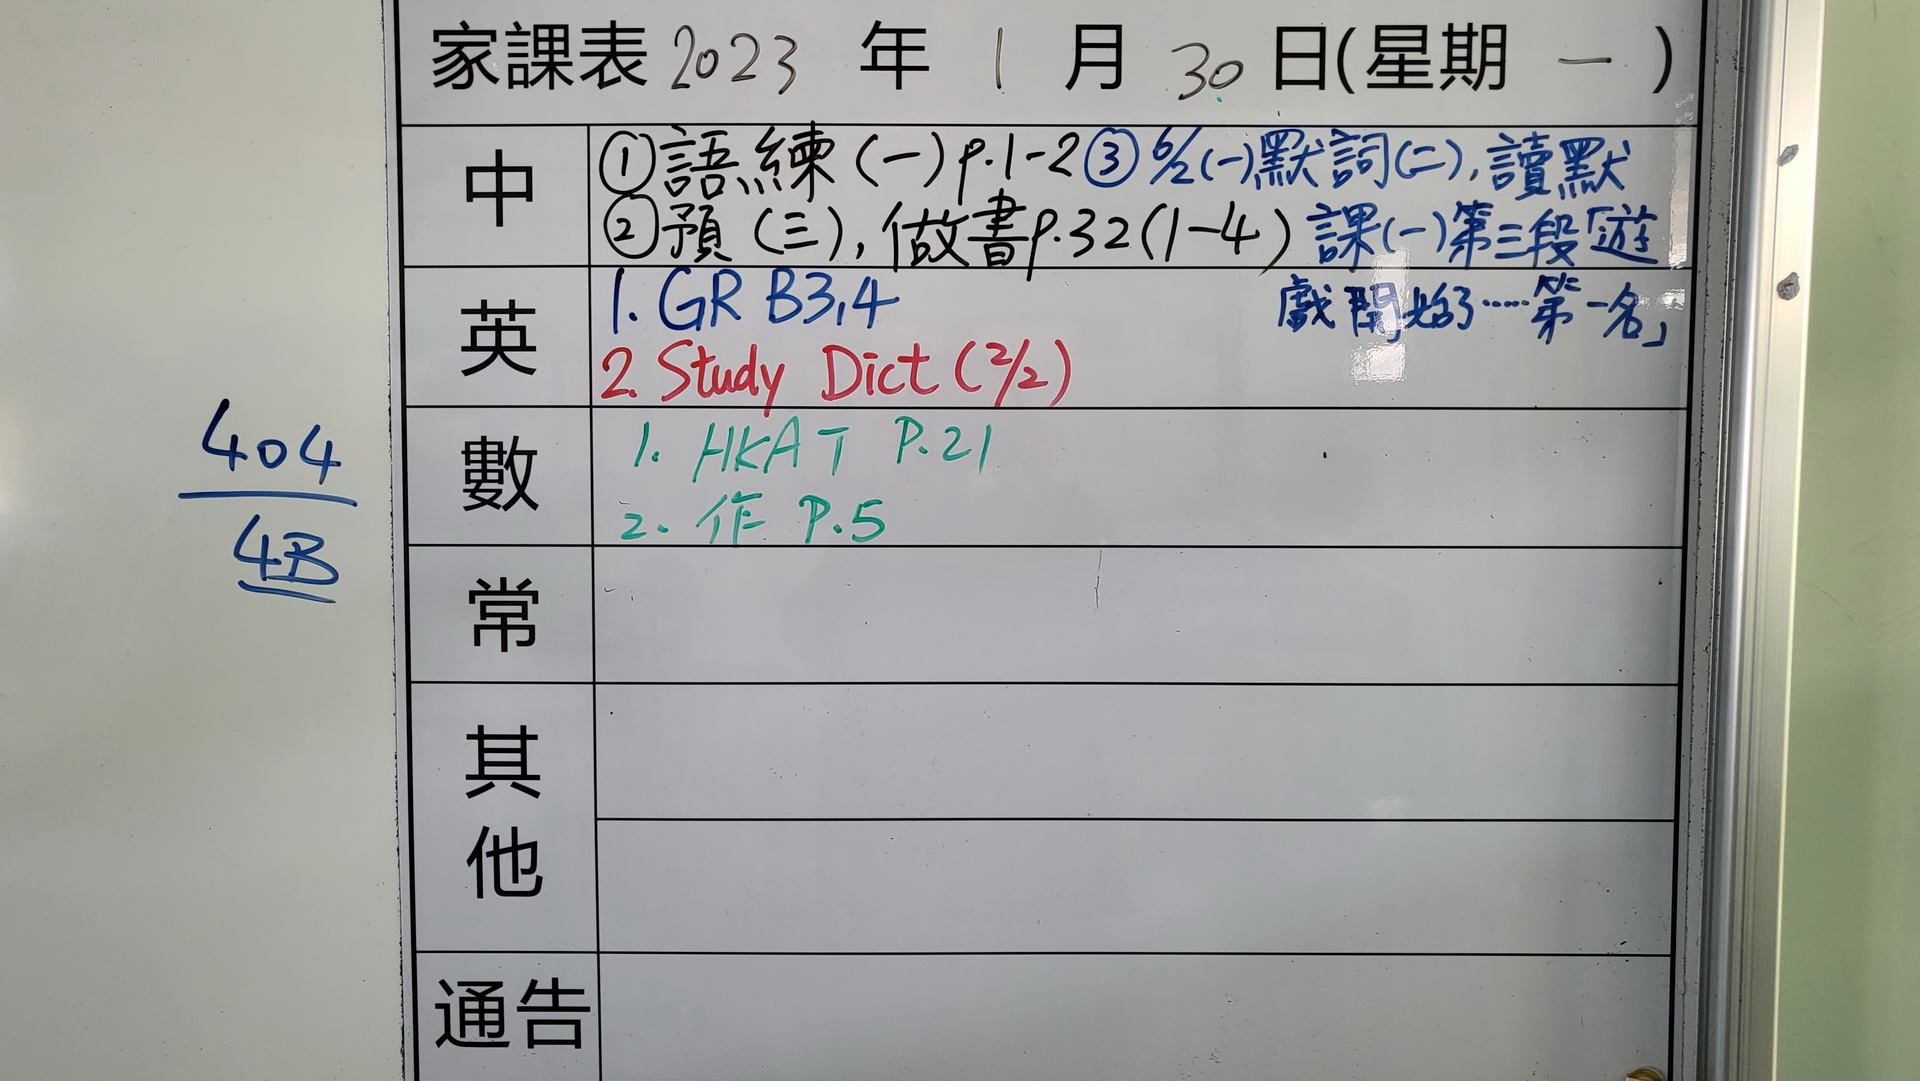 家課表 2023 年 1 月 30 日(星期 一 )
中
①語練(一)p.1-2
②預(三),做書p.32(1-4)
③6/2(一)默詞(二),讀默
課(一)第三段「遊
戲開始了……第一名」
英
1. GR B3,4
2. Study Dict (2/2)
數
1. HKAT P.21
2. 作 P.5
常
其
他
通告
404
4B